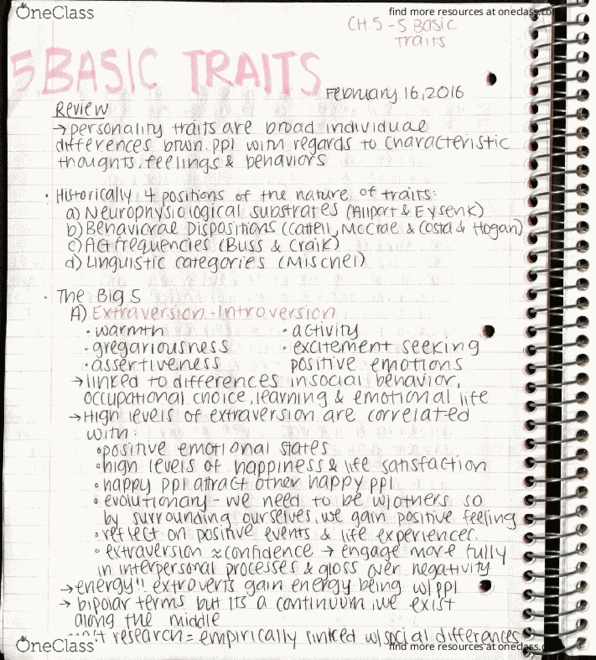 OneClass
find more resources at oneclass.co
CH.5 - 5 Basic
Traits
5 BASIC TRAITS
February 16, 2016
Review
→ personality traits are broad individual
differences btwn. ppl with regards to characteristic
thoughts, feelings & behaviors
· Historically 4 positions of the nature of traits:
a) Neurophysiological substrates (Allport & Eysenk)
b) Behavioral Dispositions (Cattell, McCrae & Costa & Hogan)
c) Act frequencies (Buss & Craik)
d) Linguistic categories (Mischel)
· The Big 5
A) Extraversion - Introversion
· warmth · activity
· gregariousness · excitement seeking
· assertiveness positive emotions
→ linked to differences in social behavior,
occupational choice, learning & emotional life
→ High levels of extraversion are correlated
with:
· positive emotional states
· high levels of happiness & life satisfaction
· happy ppl attract other happy ppl
· evolutionary - we need to be w/others so
by surrounding ourselves, we gain positive feeling
· reflect on positive events & life experiences.
· extraversion ≈ confidence → engage more fully
in interpersonal processes & gloss over negativity
→ energy!! extroverts gain energy being w/ ppl
→ bipolar terms but its a continuum, we exist
along the middle
research = empirically linked w/social differences
OneClass
find more resources at oneclass.co